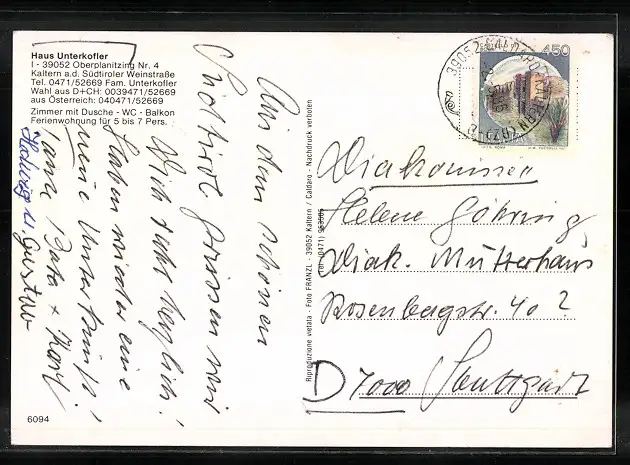 Haus Unterkofler
I - 39052 Oberplanitzing Nr. 4
Kaltern a.d. Südtiroler Weinstraße
Tel. 0471/52669 Fam. Unterkofler
Wahl aus D+CH: 0039471/52669
aus Österreich: 040471/52669
Zimmer mit Dusche - WC - Balkon
Ferienwohnung für 5 bis 7 Pers.
Aus dem schönen
Südtirol grüssen wir
Dich sehr herzlich!
Haben wieder eine
neue Unterkunft!
Tante Beta + Karl
Hedwig u. Gustav
6094
Riproduzione vietata - Foto FRANZL - 39052 Kaltern / Caldaro - Nachdruck verboten
450
39052
Diakonissen
Helene Göhring
Diak. Mutterhaus
Rosenbergstr. 40 ?
D 7000 Stuttgart